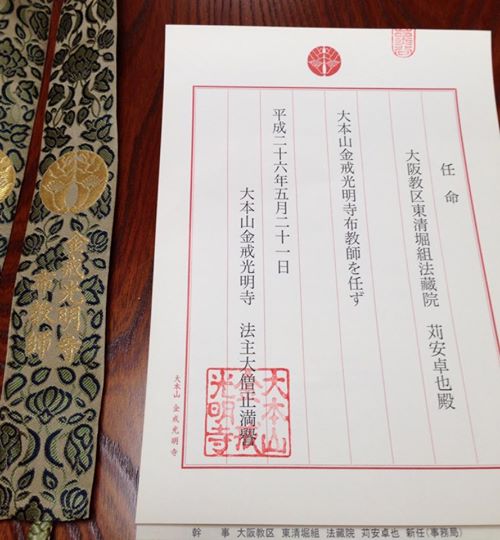 任命
大阪教区東清堀組法藏院 苅安卓也殿
大本山金戒光明寺布教師を任ず
平成二十六年五月二十一日
大本山金戒光明寺 法主大僧正満譽
大本山
金戒
光明寺
大本山 金戒光明寺
金戒光明寺
布教師
幹 事 大阪教区 東清堀組 法藏院 苅安卓也 新任(事務局)